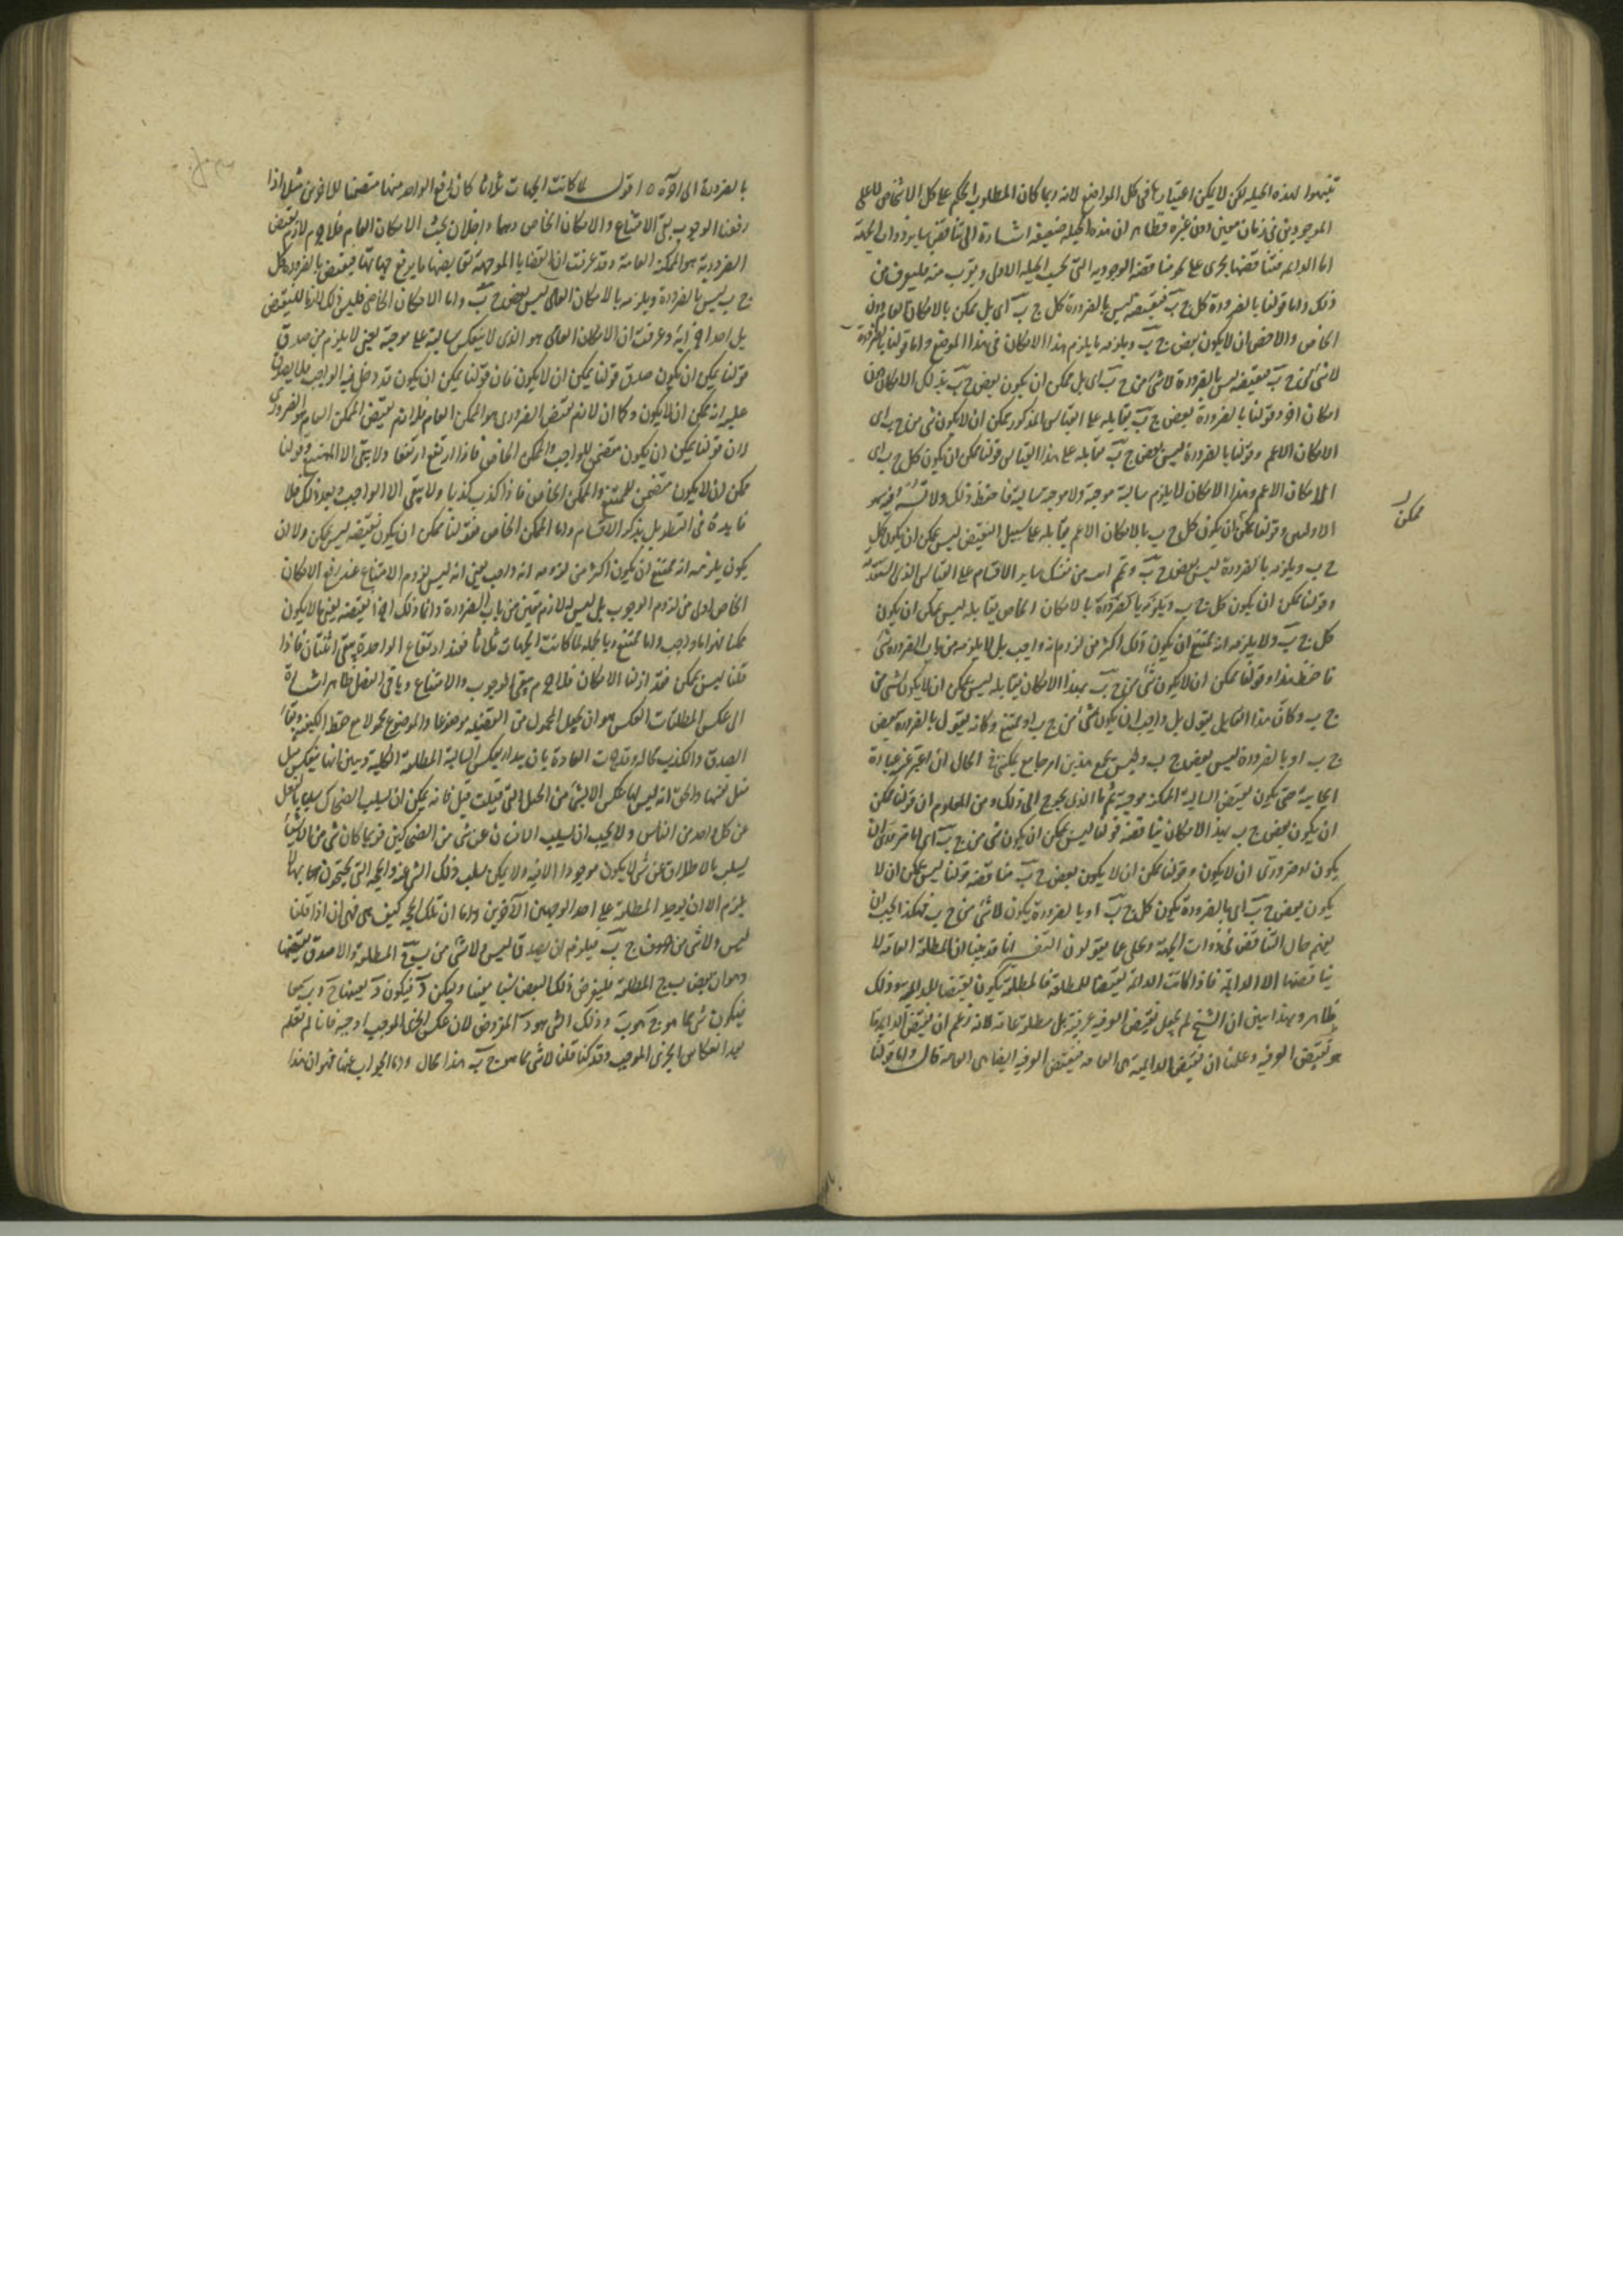 تنبهوا لهذه الحيلة لكن لا يمكن اعتبارها فى كل المواضع لانه ربما كان المطلوب الحكم على كل الاشخاص لا على
الموجودين فى زمان معين دون غيره فظاهر ان هذه الحيلة ضعيفة اشارة الى تناقض ساير ذوات الجهة
اما الدائمة فتناقضها يجرى على نحو مناقضة الوجودية التى بحسب الحيلة الاولى ويقرب منه فليعرف من
ذلك واما قولنا بالضرورة كل ج ب فنقيضه ليس بالضرورة كل ج ب اى بل ممكن بالامكان العام دون
الخاص والاخص ان لا يكون بعض ج ب ويلزمه ما يلزم هذا الامكان فى هذا الموضع واما قولنا بالضرورة
لا شئ من ج ب فنقيضه ليس بالضرورة لا شئ من ج ب اى بل ممكن ان يكون بعض ج ب بذلك الامكان دون
امكان اخر وقولنا بالضرورة بعض ج ب يقابله على القياس المذكور يمكن ان لا يكون شئ من ج ب اى
الامكان الاعم وقولنا بالضرورة ليس بعض ج ب يقابله على هذا القياس قولنا ممكن ان يكون كل ج ب اى
الامكان الاعم وهذا الامكان لا يلزم سالبة موجبة ولا موجبة سالبة فاحفظ ذلك ولا تسه فيه سهو
الاولين وقولنا ممكن ان يكون كل ج ب بالامكان الاعم يقابله على سبيل النقيض ليس بممكن ان يكون كل
ج ب ويلزمه بالضرورة ليس بعض ج ب وتمم انت من نفسك ساير الاقسام على القياس الذى استفدته
وقولنا ممكن ان يكون كل ج ب بالامكان الخاص يقابله ليس بممكن ان يكون
كل ج ب ولا يلزمه انه ممتنع ان يكون ذلك اكثر من لزوم انه واجب بل لا يلزمه من باب الضرورة شئ
فاحفظ هذا وقولنا ممكن ان لا يكون شئ من ج ب بهذا الامكان يقابله ليس بممكن ان لا يكون شئ من
ج ب وكان هذا القايل يقول بل واجب ان يكون شئ من ج ب او ممتنع وكانه يقول بالضرورة بعض
ج ب او بالضرورة ليس بعض ج ب وليس يجمع هذين امر جامع يمكننى فى الحال ان اعبر عنه عبارة
ايجابية حتى يكون نقيض السالبة الممكنة موجبة ثم ما الذى يحوج الى ذلك ومن المعلوم ان قولنا ممكن
ان يكون بعض ج ب بهذا الامكان يناقضه قولنا ليس بممكن ان يكون شئ من ج ب اى اما ضرورى ان
يكون او ضرورى ان لا يكون وقولنا ممكن ان لا يكون بعض ج ب مناقضه قولنا ليس بممكن ان لا
يكون بعض ج ب اى بالضرورة يكون كل ج ب او بالضرورة يكون لا شئ من ج ب فهكذا يجب ان
يفهم حال التناقض فى ذوات الجهة وتخلى عما يقولون انا قد بينا ان المطلقة العامة لا
يناقضها الا الدايمة فاذا كانت الدايمة نقيضا للمطلقة فالمطلقة يكون نقيضا للدايمة وذلك
ظاهر وبهذا يتبين ان الشيخ لم يجعل نقيض العرفية عرفية بل مطلقة عامة لانه زعم ان نقيض الدايمة
نقيض العرفية وعلمنا ان نقيض الدايمة هى العامة فنقيض العرفية ايضا هى العامة قال واما قولنا
ممكن
بالضرورة الى اخره اقول لما كانت الجهات ثلاثا كان رفع الواحد منها متضمنا للاخرين مثلا اذا
رفعنا الوجوب بقى الامتناع والامكان الخاص وهما داخلان تحت الامكان العام فلا جرم لازم نقيض
الضرورية هو الممكنة العامة وقد عرفت ان القضايا الموجهة نقايضها ما يرفع جهاتها فنقيض بالضرورة كل
ج ب ليس بالضرورة ويلزمه بالامكان العام ليس بعض ج ب واما الامكان الخاص فليس ذلك لازما للنقيض
بل احد اجزائه وعرفت ان الامكان العام هو الذى لا ينعكس سالبة على موجبة يعنى لا يلزم من صدق
قولنا يمكن ان يكون صدق قولنا يمكن ان لا يكون فان قولنا يمكن ان يكون قد دخل فيه الواجب فلا يصدق
عليه انه يمكن ان لا يكون وكما ان لازم نقيض الضرورى هو الممكن العام فلازم نقيض الممكن العام هو الضرورى
لان قولنا يمكن ان يكون متضمن للواجب والممكن الخاص فاذا ارتفع ارتفعا ولا يبقى الا الممتنع وقولنا
ممكن ان لا يكون متضمن للممتنع والممكن الخاص فاذا كذب كذبا ولا يبقى الا الواجب وبعد ذلك فلا
فايدة فى التطويل بذكر الاقسام واما الممكن الخاص فقولنا ممكن ان يكون نقيضه ليس بممكن ولا ان
يكون يلزمه انه ممتنع ان يكون اكثر من لزومه انه واجب يعنى انه ليس لزوم الامتناع عند رفع الامكان
الخاص اولى من لزوم الوجوب بل ليس له لازم معين من باب الضرورة
ممكنا فهو اما واجب واما ممتنع وبالجملة لما كانت الجهات ثلاثا فعند ارتفاع الواحدة يبقى اثنتان فاذا
قلنا ليس بممكن فقد ازلنا الامكان فلا جرم بقى الوجوب والامتناع وباقى الفصل ظاهر اشارة
الى عكس المطلقات العكس هو ان يجعل المحمول من القضية موضوعا والموضوع محمولا مع حفظ الكيفية وبقاء
الصدق والكذب بحاله وقد جرت العادة بان يبدا بعكس السالبة المطلقة الكلية وبين انها منعكسة مثل
نفسها والحق انه ليس لها عكس الا بشئ من الحيل التى قيلت قبل فانه يمكن ان يسلب الضحاك سلبا بالفعل
عن كل واحد من الناس ولا يجب ان يسلب الانسان عن شئ من الضحاكين فربما كان شئ من الاشياء
يسلب بالاطلاق عن شئ لا يكون موجودا الا فيه ولا يمكن سلب ذلك الشئ عنه والحجة التى يحتجون بها
يلزم الا ان يوجد المطلقة على احد الوجهين الاخرين واما ان تلك الحجة كيف هى فهى ان اذا قلنا
ليس ولا شئ من ج ب فيلزم ان يصدق ليس ولا شئ من ب ج المطلقة والا صدق نقيضها
وهو ان بعض ب ج المطلقة فليفرض ذلك البعض شيئا معينا وليكن د فيكون د بعينها ج و ب معا
فيكون شئ مما هو ج هو ب وذلك الشئ هو د المفروض لان عكس الجزئى الموجب اوجبه فانا لم نعلم
بعد انعكاس الجزئى الموجب وقد كنا قلنا لا شئ مما هو ج ب هذا محال واما الجواب عنها فهو ان هذا